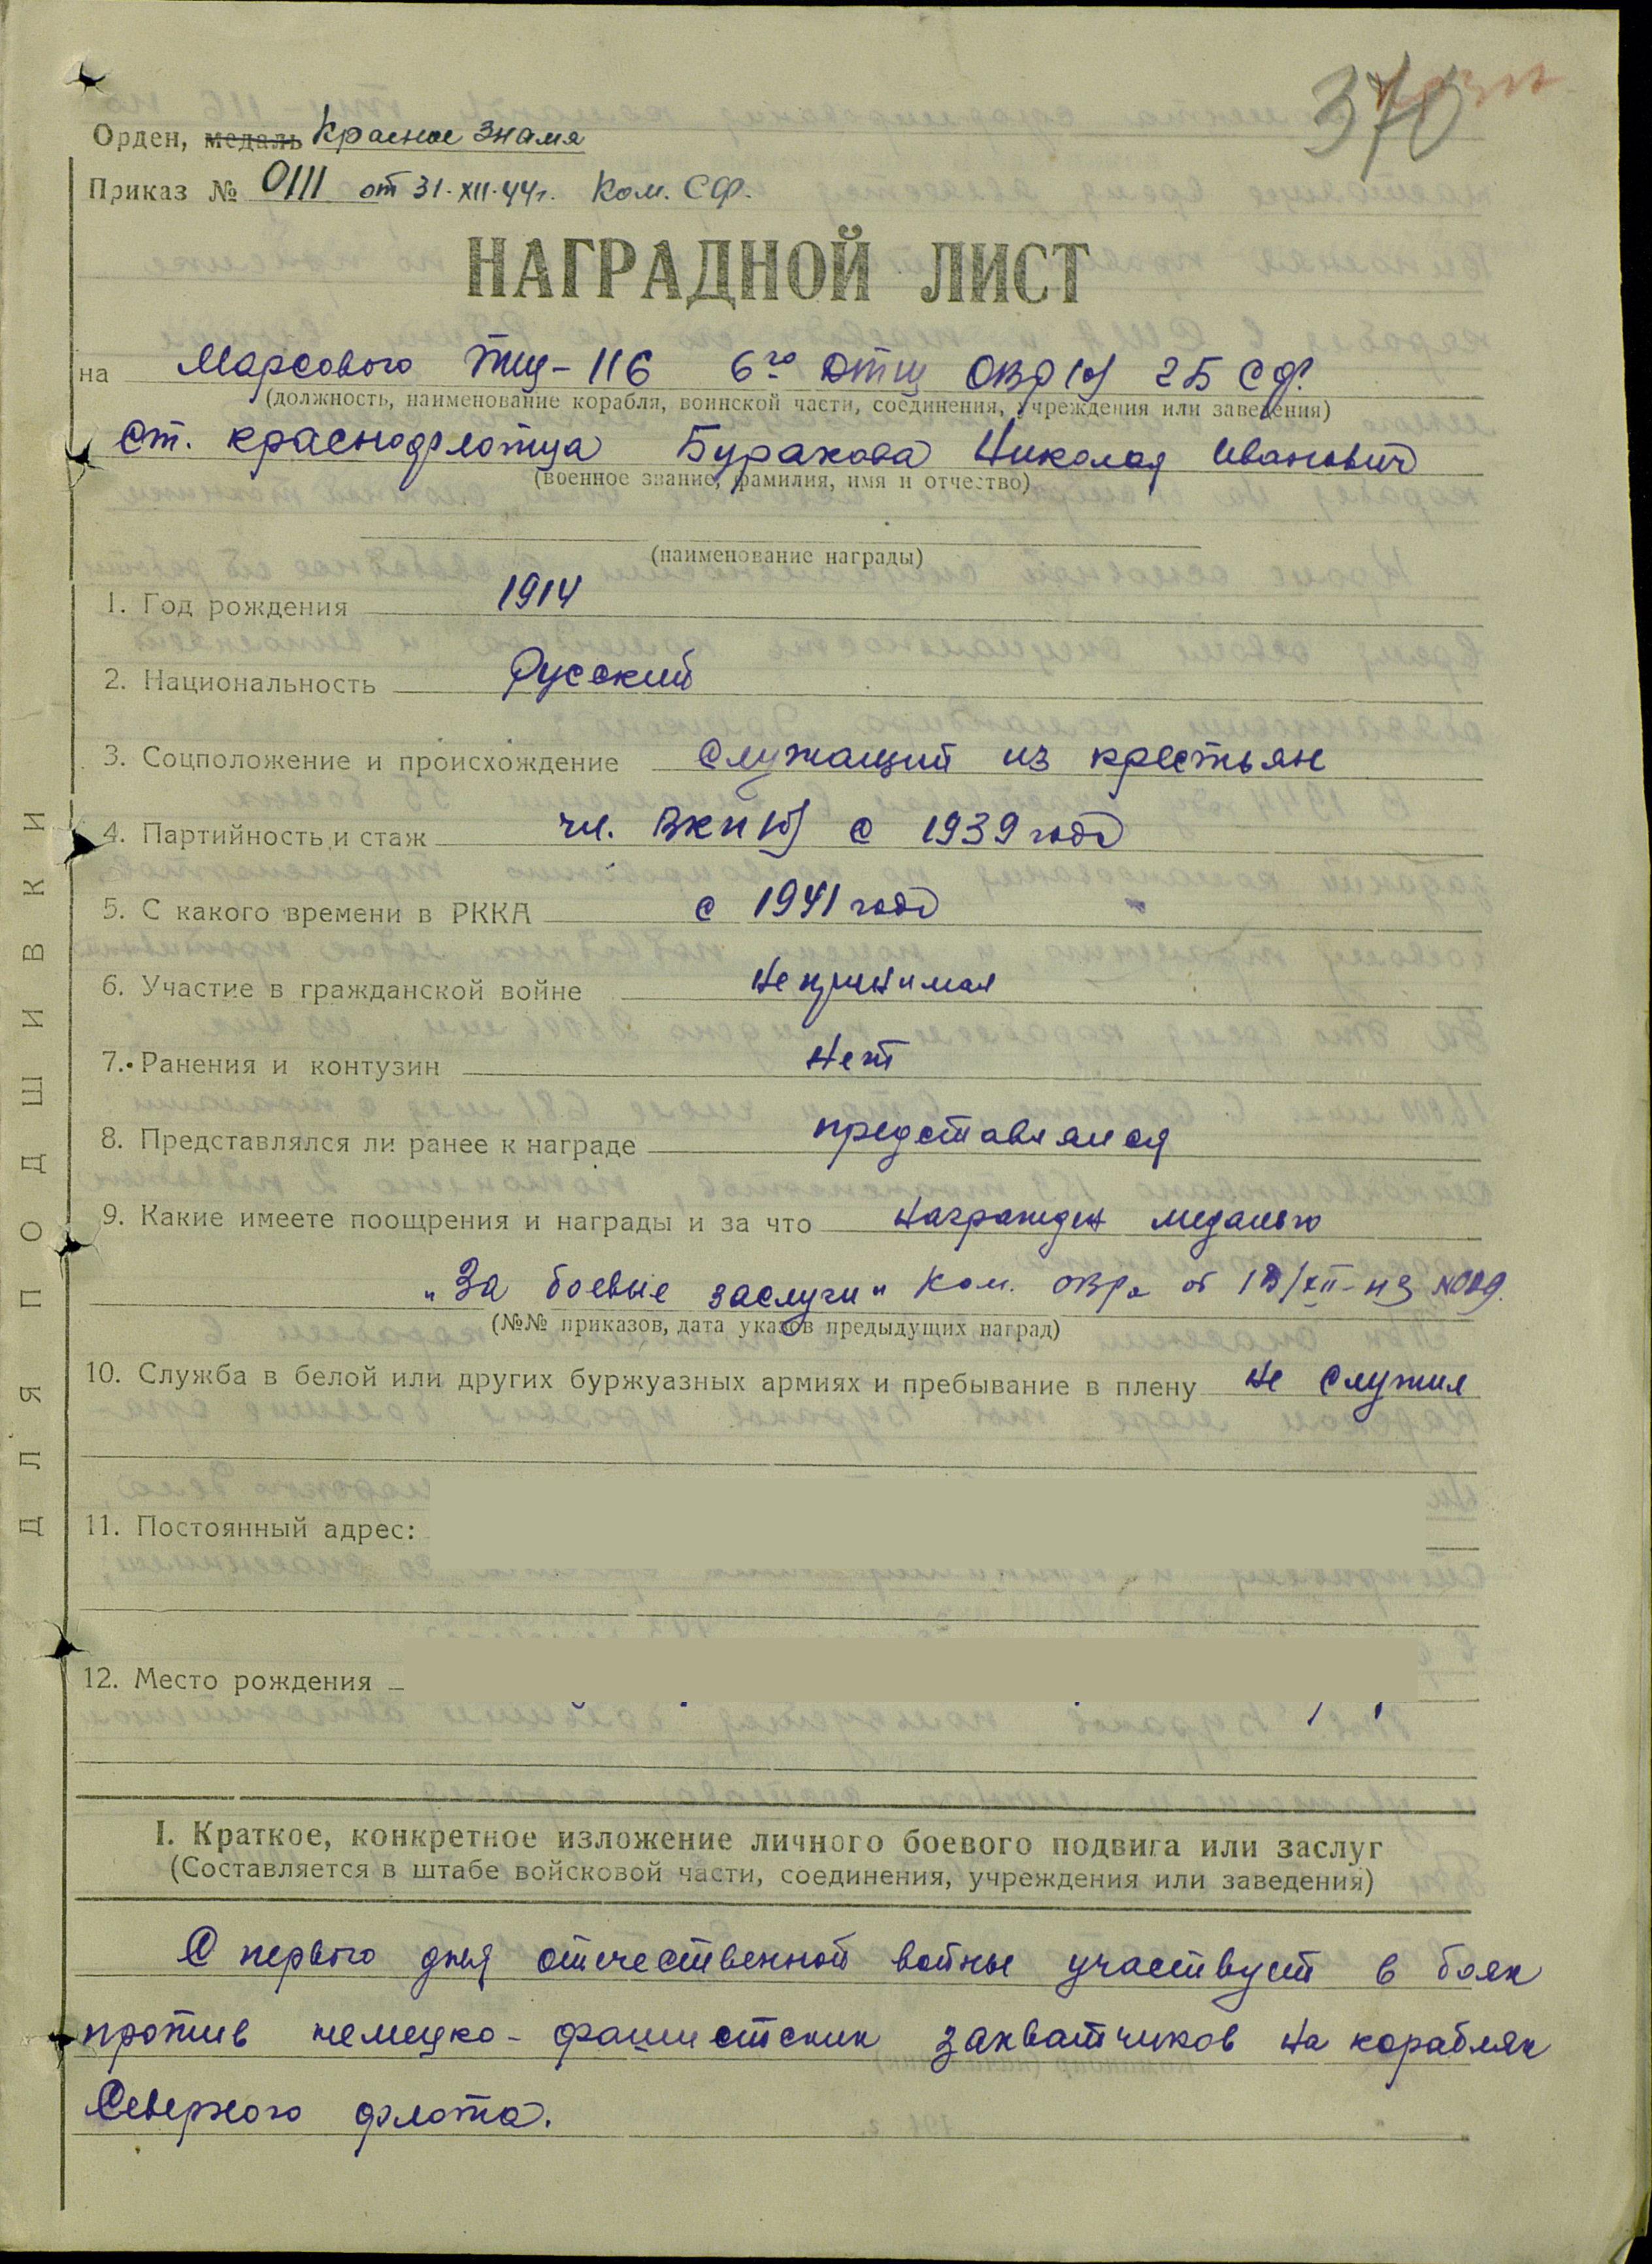 370
Орден, медаль Красное Знамя
Приказ № 0111 от 31.XII.44г. Ком. СФ.
НАГРАДНОЙ ЛИСТ
на Марсового ТЩ-116 6го ДТЩ ОВР СФ.
(должность, наименование корабля, воинской части, соединения, учреждения или заведения)
ст. краснофлотца Буракова Николая Иванович
(военное звание, фамилия, имя и отчество)
(наименование награды)
1. Год рождения 1914
2. Национальность Русский
3. Соцположение и происхождение Служащий из крестьян
4. Партийность и стаж чл. ВКП(б) с 1939 года
5. С какого времени в РККА с 1941 года
6. Участие в гражданской войне Не принимал
7. Ранения и контузии Нет
8. Представлялся ли ранее к награде представлялся
9. Какие имеете поощрения и награды и за что Награжден медалью
„За боевые заслуги" Ком. ОВРа от
(№№ приказов, дата указов предыдущих наград)
10. Служба в белой или других буржуазных армиях и пребывание в плену Не служил
11. Постоянный адрес:
12. Место рождения
I. Краткое, конкретное изложение личного боевого подвига или заслуг
(Составляется в штабе войсковой части, соединения, учреждения или заведения)
С первого дня отечественной войны участвует в боях
против немецко-фашистских захватчиков на кораблях
Северного флота.
ДЛЯ ПОДШИВКИ